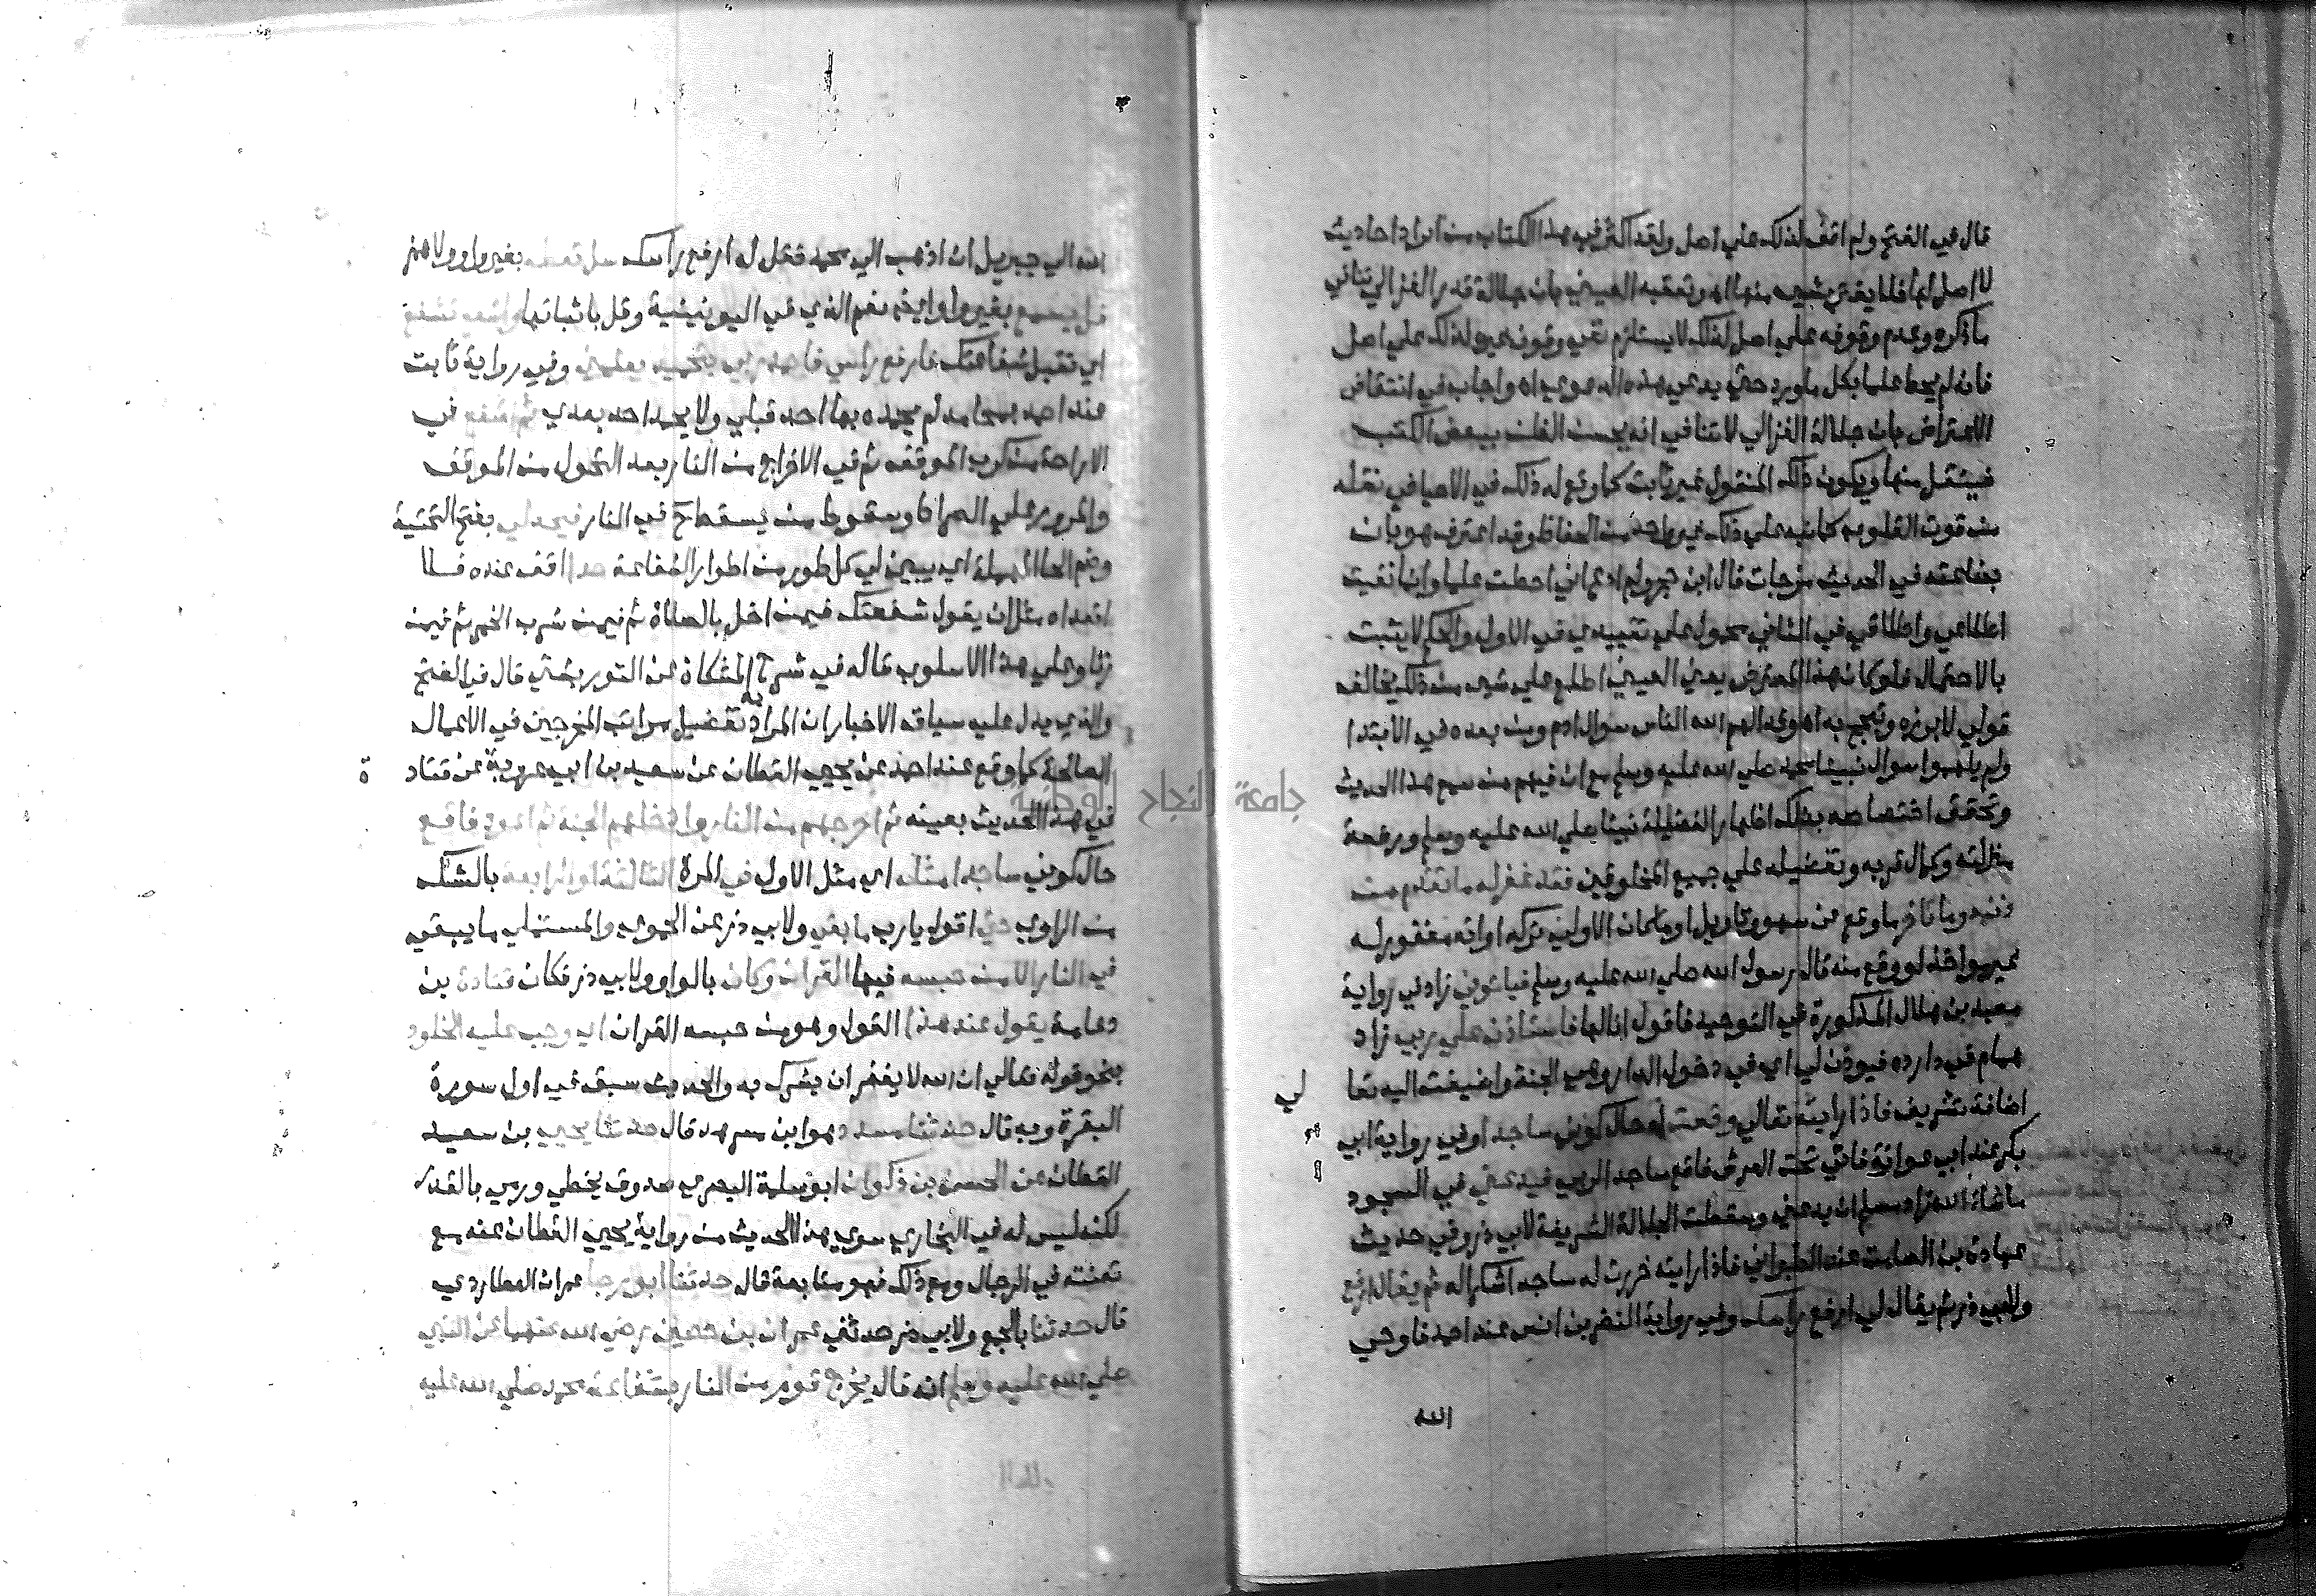 قال في الفتح ولم اقف لذلك علي اصل ولقد اكثر في هذا الكتاب من ايراد احاديث
لا اصل لها فلا يغتر بشي منها اه وتعقبه العيني بان جلالة قدر الغزالي تنافي
ما ذكره وعدم وقوفه علي اصل لذلك لا يستلزم نفي وقوف غيره لذلك علي اصل
فانه لم يحط علما بكل ما ورد حتي يدعي هذه الدعوي اه واجاب في انتقاض
الاعتراض بان جلالة الغزالي لا تنافي انه يحسن الظن ببعض الكتب
فينقل منها ويكون ذلك المنقول غير ثابت كما وقع له ذلك في الاحيا في نقله
من قوت القلوب كما نبه علي ذلك غير واحد من الحفاظ وقد اعترف هو بان
بضاعته في الحديث مزجاة قال ابن حجر ولم ادع اني احطت علما وانما نفيت
اطلاعي واطلاقي في الثاني محمول علي تقييدي في الاول والحكم لا يثبت
بالاحتمال فلو كان هذا المعترض يعني العيني اطلع علي شي من ذلك يخالف
قولي لابرزه وتبجح به اه وقد الهم الله الناس سوال ادم ومن بعده في الابتدا
ولم يلهموا سوال نبينا محمد صلي الله عليه وسلم مع ان فيهم من سمع هذا الحديث
وتحقق اختصاصه بذلك اظهارا لفضيلة نبينا صلي الله عليه وسلم ورفعة
منزلته وكمال قربه وتفضيله علي جميع المخلوقين فقد غفر له ما تقدم من
ذنبه وما تاخر ما وقع عن سهو وتاويل او ما كان الاولي تركه او انه مغفور له
غير مواخذ لو وقع منه قال رسول الله صلي الله عليه وسلم فياتوني زاد في رواية
معبد بن هلال المذكورة في التوحيد فاقول انا لها فاستاذن علي ربي زاد
همام في داره فيوذن لي اي في دخول الدار وهي الجنة واضيفت اليه تعا لي
اضافة تشريف فاذا رايته تعالي وقعت له حال كوني ساجدا وفي رواية ابي
بكر عند ابي عوانة فاتي تحت العرش فاقع ساجدا لربي فيدعني في السجود
ما شاء الله زاد مسلم ان يدعني وسقطت الجلالة الشريفة لابي ذر وفي حديث
عبادة بن الصامت عند الطبراني فاذا رايته خررت له ساجدا شكرا له ثم يقال ارفع
ولابي ذر ثم يقال لي ارفع راسك وفي رواية النضر بن انس عند احمد فاوحي
الله
الله الي جبريل ان اذهب الي محمد فقل له ارفع راسك سل تعطه بغير واو ولا همز
قل يسمع بغير واو ايضا نعم الذي في اليونينية وقل باثباتها واشفع تشفع
اي تقبل شفاعتك فارفع راسي فاحمد ربي بتحميد يعلمني وفي رواية ثابت
عند احمد بمحامد لم يحمده بها احد قبلي ولا يحمده احد بعدي ثم اشفع في
الاراحة من كرب الموقف ثم في الاخراج من النار بعد التحول من الموقف
والمرور علي الصراط وسقوط من يسقط ح في النار فيحد لي بفتح التحتية
وضم الحا المهملة اي يبين لي كل طور من اطوار الشفاعة حدا اقف عنده فلا
اتعداه مثل ان يقول شفعتك فيمن اخل بالصلاة ثم فيمن شرب الخمر ثم فيمن
زنا وعلي هذا الاسلوب قاله في شرح المشكاة عن التوربشتي قال في الفتح
والذي يدل عليه سياق الاخبار ان المراد به تفضيل مراتب المخرجين في الاعمال
الصالحة كما وقع عند احمد عن يحيي القطان عن سعيد بن ابي عروبة عن قتاد ة
في هذا الحديث بعينه ثم اخرجهم من النار وادخلهم الجنة ثم اعود فاقع
حال كوني ساجدا مثله اي مثل الاول في المرة الثالثة او الرابعة بالشك
من الراوي حتي اقول يا رب ما بقي ولابي ذر عن الحموي والمستملي ما يبقي
في النار الا من حبسه فيها القران وكان بالواو ولابي ذر فكان قتادة بن
دعامة يقول عند هذا القول وهو من حبسه القران اي وجب عليه الخلود
بنحو قوله تعالي ان الله لا يغفر ان يشرك به والحديث سبق في اول سورة
البقرة وبه قال حدثنا مسدد هو ابن مسرهد قال حدثنا يحيي بن سعيد
القطان عن الحسن بن ذكوان ابو سلمة البصري صدوق يخطي ورمي بالقدر
لكنه ليس له في البخاري سوي هذا الحديث من رواية يحيي القطان عنه مع
تعنته في الرجال ومع ذلك فهو متابعة قال حدثنا ابو رجا عمران العطاردي
قال حدثنا بالجمع ولابي ذر حدثني عمران بن حصين رضي الله عنهما عن النبي
صلي الله عليه وسلم انه قال يخرج قوم من النار بشفاعة محمد صلي الله عليه
جامعة النجاح الوطنية